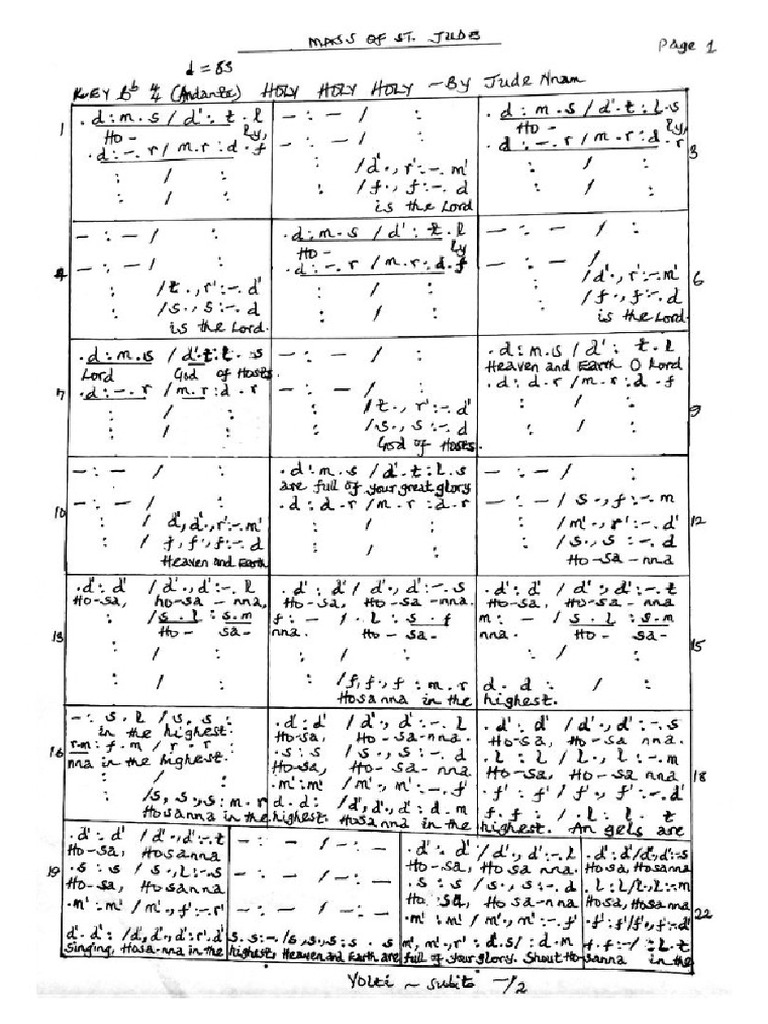 MASS OF ST. JUDE
Page 1
d = 83
KEY Bb 4/4 (Andante) HOLY HOLY HOLY ~ BY Jude Nnam
1
.d : m.s / d' : t.l
Ho - ly,
.d : -.r / m.r : d.f
- : - / :
- : - / :
: /d'., r' : -.m'
: /f., f : -.d
is the Lord
.d : m.s / d'.t : l.s
Ho - ly,
.d : -.r / m.r : d.r
3
4
- : - / :
- : - / :
: /t., r' : -.d'
: /s., s : -.d
is the Lord.
.d : m.s / d' : t.l
Ho - ly
.d : -.r / m.r : d.f
- : - / :
- : - / :
: /d'., r' : -.m'
: /f., f : -.d
is the Lord.
6
7
.d : m.s / d'.t : l.s
Lord God of Hosts.
.d : -.r / m.r : d.r
- : - / :
- : - / :
: /t., r' : -.d'
: /s., s : -.d
God of Hosts.
.d : m.s / d' : t.l
Heaven and Earth O Lord
.d : d.r / m.r : d.f
9
10
- : - / :
- : - / :
: / d', d'., r' : -.m'
: / f, f., f : -.d
Heaven and Earth
.d : m.s / d'.t : l.s
are full of your great glory
.d : d.r / m.r : d.r
- : - / :
- : - / s., f : -.m
: /m'., r' : -.d'
: /s., s : -.d
Ho-sa-nna
12
13
.d' : d' / d'., d' : -.l
Ho-sa, ho-sa-nna,
: /s.l : s.m
Ho- sa-
.d' : d' / d'., d' : -.s
Ho-sa, Ho-sa-nna.
f : - / .l : s.f
nna. Ho-sa-
: /f, f., f : m.r
Hosanna in the
.d' : d' / d'., d' : -.t
Ho-sa, Ho-sa-nna
m : - / s.l : s.m
nna. Ho- sa-
d.d : / :
highest.
15
16
- : s.l / s., s :
in the highest.
r.m : f.m / r.r :
nna in the highest.
: /s, s., s : m.r
Hosanna in the
.d' : d' / d'., d' : -.l
Ho-sa, Ho-sa-nna.
.s : s / s., s : -.d
Ho-sa, Ho-sa-nna
.m' : m' / m'., m' : -.f'
d.d : /d', d'., d' : d.m
highest. Hosanna in the
.d' : d' / d'., d' : -.s
Ho-sa, Ho-sa nna.
.l : l / l., l : -.m
Ho-sa, Ho-sa nna
.f' : f' / f'., f' : -.d'
f.f : / .l : l.t
highest. An gels are
18
19
.d' : d' / d'., d' : -.t
Ho-sa, Hosanna
.s : s / s., l : -.s
Ho-sa, Hosanna
.m' : m' / m'., f' : -.r'
d'.d' : /d', d'., d' : r'.d'
singing, Hosa-nna in the
- : - / - : -
- : - / - : -
- : - / - : -
s.s : - /s, s., s : s.s
highest. Heaven and Earth are
.d' : d' / d'., d' : -.l
Ho-sa, Ho-sa nna.
.s : s / s., s : -.d
Ho sa, Ho sa-nna
.m' : m' / m'., m' : -.f'
m', m'., r' : d.s / : d.m
full of your glory. Shout Ho-
.d' : d' / d'., d' : -.s
Hosa, Hosanna
.l : l / l., l : -.m
Hosa, Hosanna
.f' : f' / f'., f' : -.d'
f.f : - / : l.t
sanna in the
22
Volti ~ Subito -/2